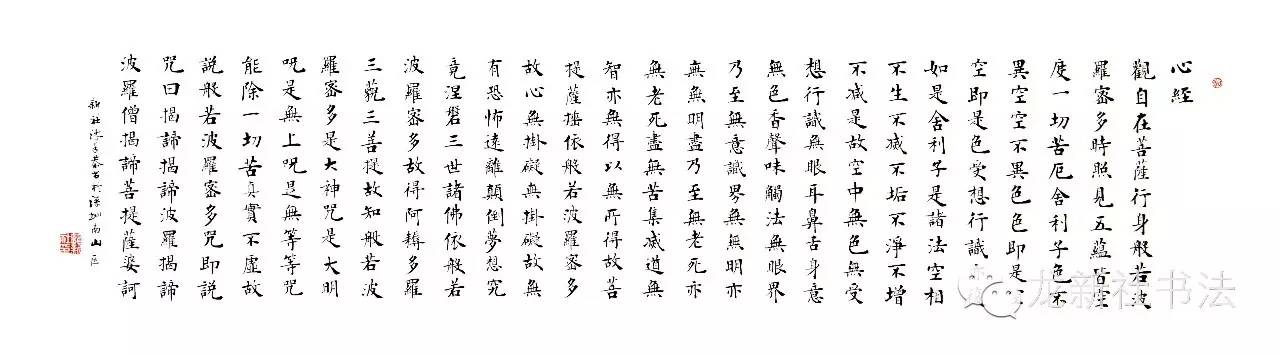 心經
觀自在菩薩行身般若波
羅密多時照見五蘊皆空
度一切苦厄舍利子色不
異空空不異色色即是
空即是色受想行識
如是舍利子是諸法空相
不生不滅不垢不淨不增
不減是故空中無色無受
想行識無眼耳鼻舌身意
無色香聲味觸法無眼界
乃至無意識界無無明亦
無無明盡乃至無老死亦
無老死盡無苦集滅道無
智亦無得以無所得故菩
提薩埵依般若波羅密多
故心無掛礙無掛礙故無
有恐怖遠離顛倒夢想究
竟涅磐三世諸佛依般若
波羅密多故得阿耨多羅
三藐三菩提故知般若波
羅密多是大神咒是大明
呪是無上呪是無等等咒
能除一切苦真實不虛故
説般若波羅密多咒即説
咒曰揭諦揭諦波羅揭諦
波羅僧揭諦菩提薩婆訶
新社 深圳南山區
龙新社书法